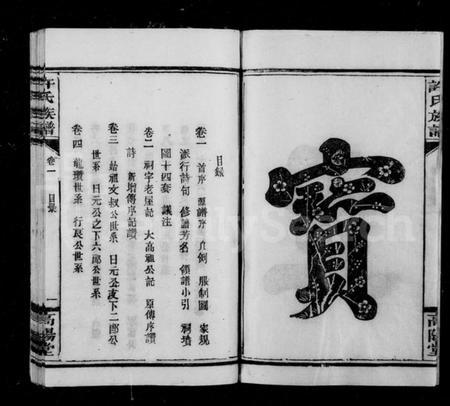 許氏族譜
高陽堂
寶
目錄
卷一 首序 源譜序 凡例 服制圖 家規
派行詩句 修譜芳名 領譜小引 祠墳
圖十四套 議注
卷二 祠宇老屋記 大高祖公記 原傳序讚
詩 新增傳序記讚
卷三 始祖文叔公世系 日元公改下二郎公
世系 日元公之下六郎公世系
卷四 龍瓚世系 行良公世系
許氏族譜
卷一
目錄
一
高陽堂